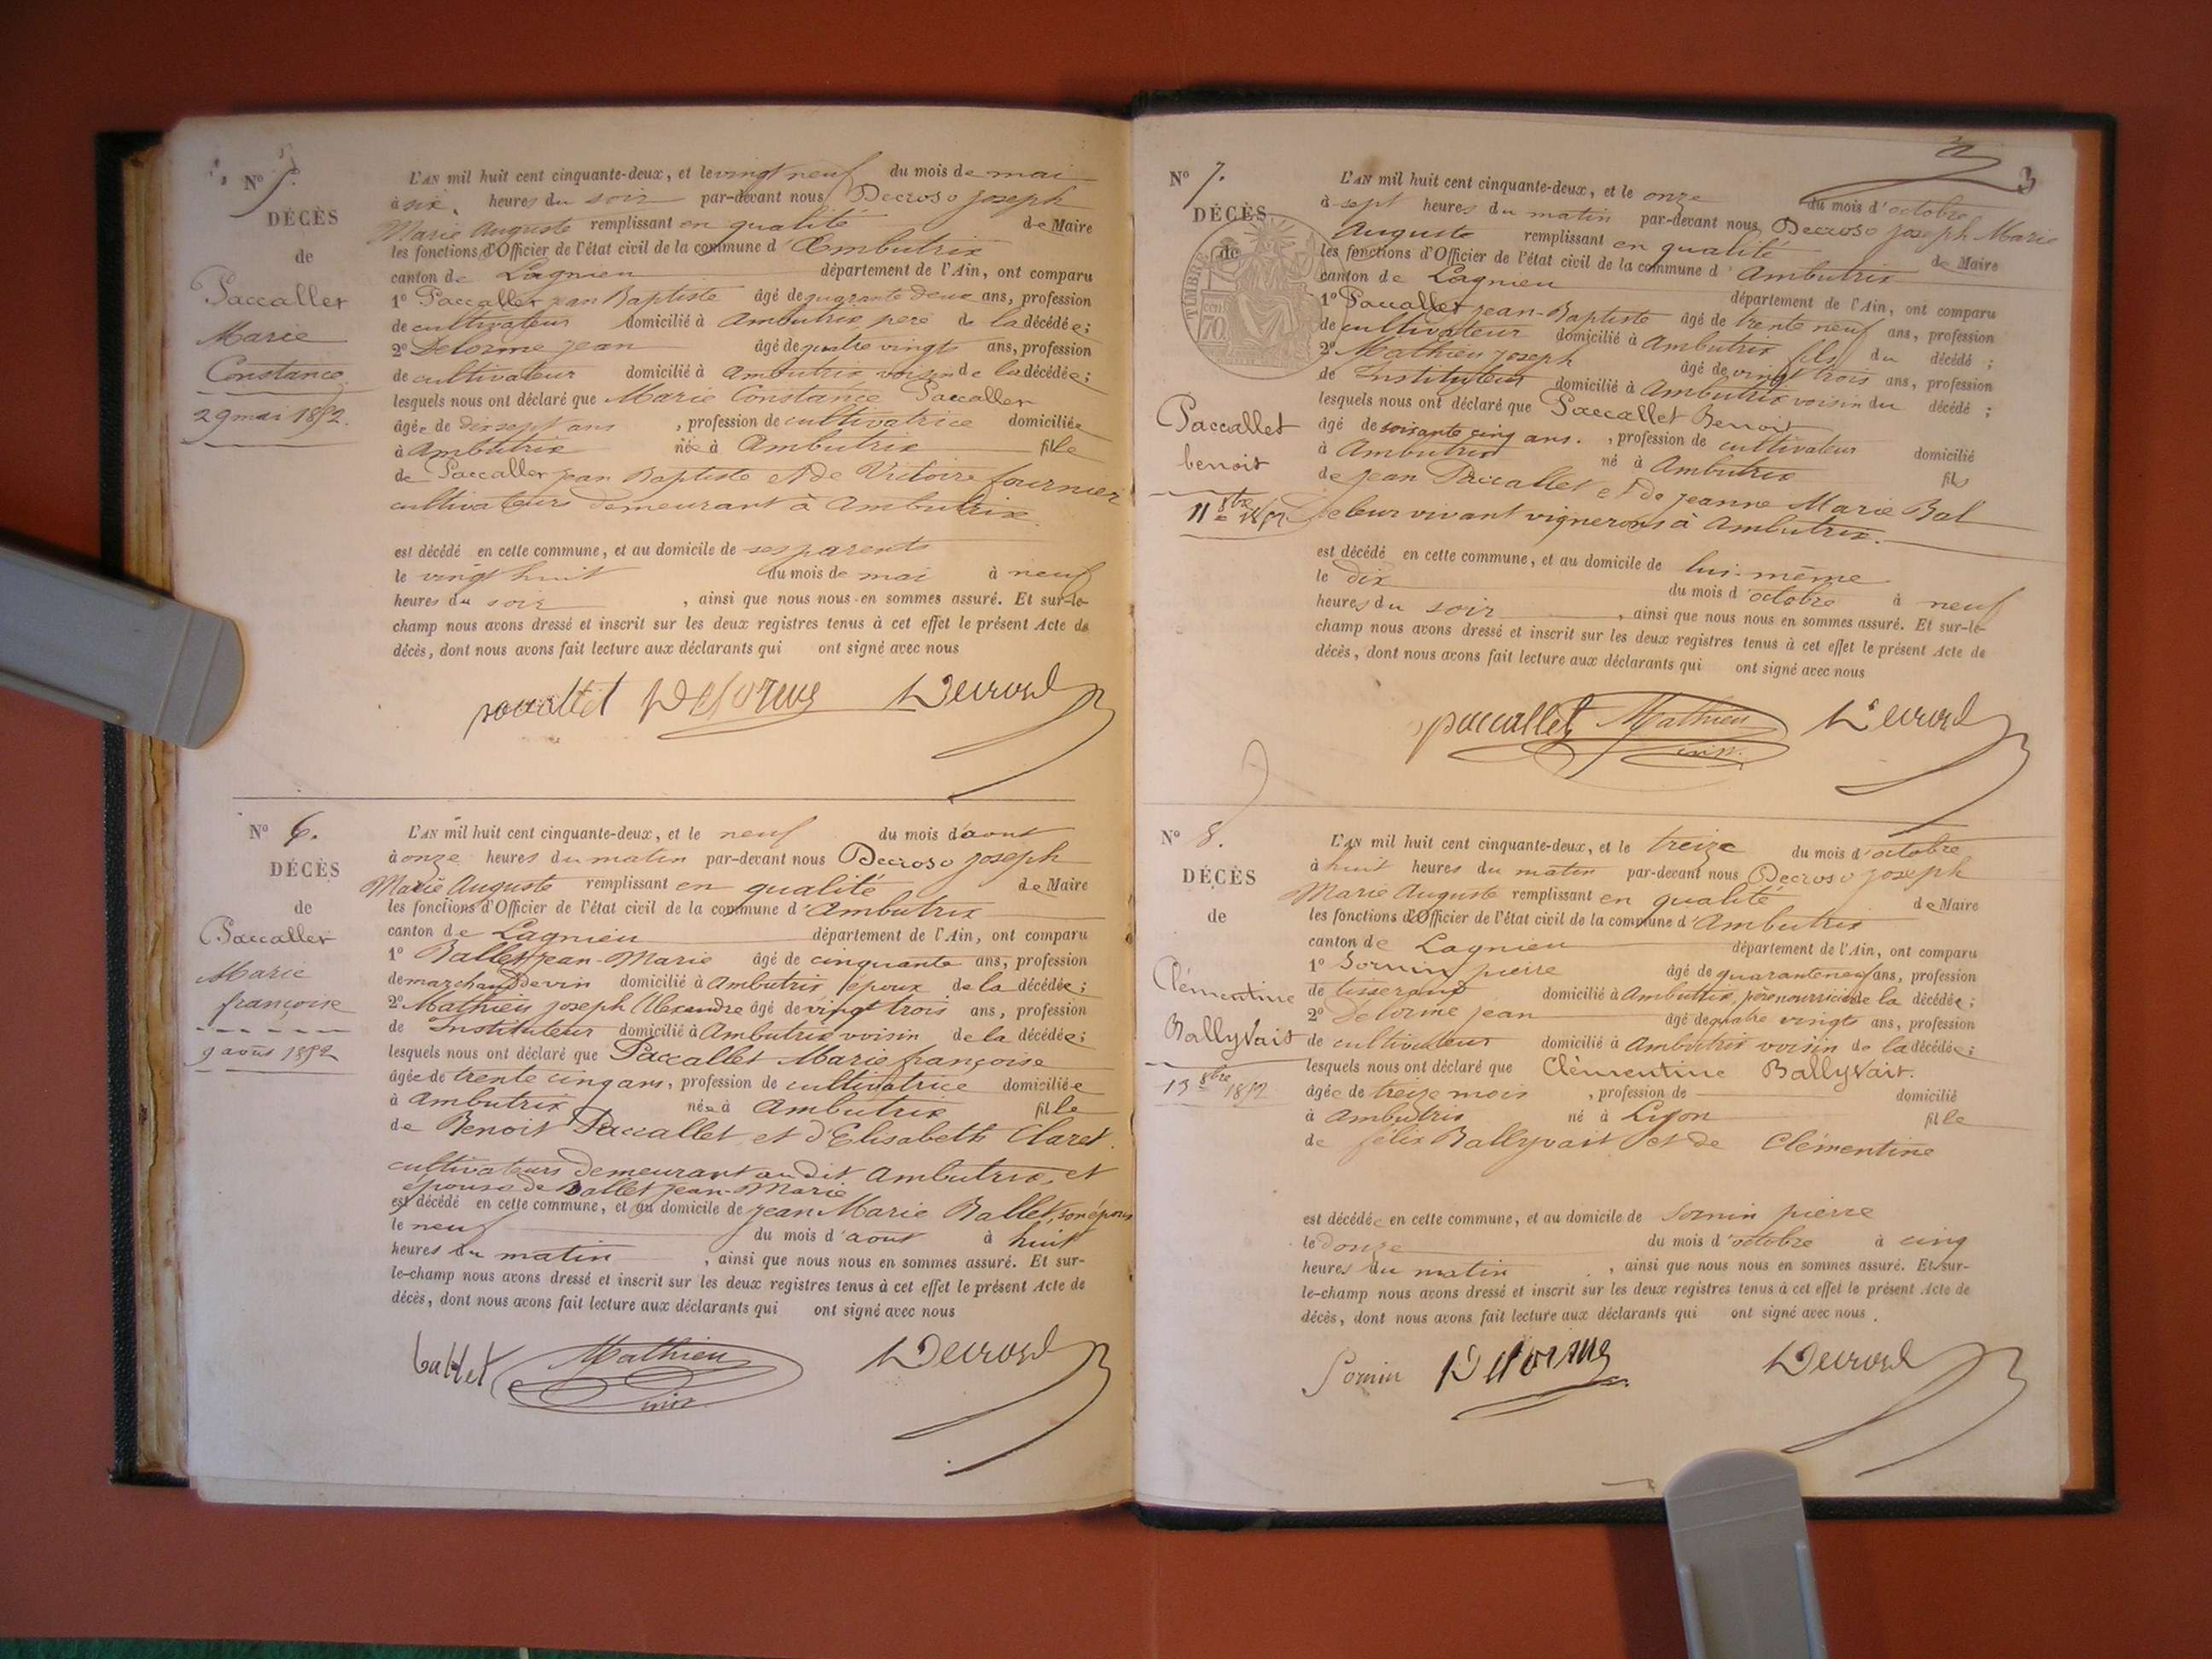 N° 5.
DÉCÈS
de
Paccallet
Marie
Constance
29 mai 1852.
L'AN mil huit cent cinquante-deux, et le vingt neuf du mois de mai
à six heures du soir par-devant nous Decroso joseph
Marie Auguste remplissant en qualité de Maire
les fonctions d'Officier de l'état civil de la commune d'Ambutrix
canton de Lagnieu département de l'Ain, ont comparu
1° Paccallet jean Baptiste âgé de quarante deux ans, profession
de cultivateur domicilié à Ambutrix père de la décédée;
2° Delorme jean âgé de quatre vingts ans, profession
de cultivateur domicilié à Ambutrix voisin de la décédée;
lesquels nous ont déclaré que Marie Constance Paccallet
âgée de dix sept ans, profession de cultivatrice domiciliée
à Ambutrix née à Ambutrix fille
de Paccallet jean Baptiste et de Victoire fournier
cultivateurs demeurant à Ambutrix.
est décédé en cette commune, et au domicile de ses parents
le vingt huit du mois de mai à neuf
heures du soir, ainsi que nous nous en sommes assuré. Et sur-le-
champ nous avons dressé et inscrit sur les deux registres tenus à cet effet le présent Acte de
décès, dont nous avons fait lecture aux déclarants qui ont signé avec nous
paccallet Delorme Decroso
N° 6.
DÉCÈS
de
Paccallet
Marie
françoise
9 août 1852
L'AN mil huit cent cinquante-deux, et le neuf du mois d'aout
à onze heures du matin par-devant nous Decroso joseph
Marie Auguste remplissant en qualité de Maire
les fonctions d'Officier de l'état civil de la commune d'Ambutrix
canton de Lagnieu département de l'Ain, ont comparu
1° Ballet jean-Marie âgé de cinquante ans, profession
de marchand de vin domicilié à Ambutrix époux de la décédée;
2° Mathieu joseph Alexandre âgé de vingt trois ans, profession
de Instituteur domicilié à Ambutrix voisin de la décédée;
lesquels nous ont déclaré que Paccallet Marie françoise
âgée de trente cinq ans, profession de cultivatrice domiciliée
à Ambutrix née à Ambutrix fille
de Benoit Paccallet et d'Elisabeth Claret.
cultivateurs demeurant au dit Ambutrix, et
épouse de Ballet jean-Marie
est décédé en cette commune, et au domicile de jean Marie Ballet, son époux
le neuf du mois d'aout à huit
heures du matin, ainsi que nous nous en sommes assuré. Et sur-
le-champ nous avons dressé et inscrit sur les deux registres tenus à cet effet le présent Acte de
décès, dont nous avons fait lecture aux déclarants qui ont signé avec nous
ballet Mathieu Decroso
3
N° 7.
DÉCÈS
de
TIMBRE
70
Paccallet
benoit
11 8bre 1852
L'AN mil huit cent cinquante-deux, et le onze du mois d'octobre
à sept heures du matin par-devant nous Decroso joseph Marie
Auguste remplissant en qualité de Maire
les fonctions d'Officier de l'état civil de la commune d'Ambutrix
canton de Lagnieu département de l'Ain, ont comparu
1° Paccallet jean-Baptiste âgé de trente neuf ans, profession
de cultivateur domicilié à Ambutrix fils du décédé;
2° Mathieu joseph âgé de vingt trois ans, profession
de Instituteur domicilié à Ambutrix voisin du décédé;
lesquels nous ont déclaré que Paccallet Benoit
âgé de soixante cinq ans., profession de cultivateur domicilié
à Ambutrix né à Ambutrix fils
de jean Paccallet et de jeanne Marie Bal
de leur vivant vignerons à Ambutrix.
est décédé en cette commune, et au domicile de lui-même
le dix du mois d'octobre à neuf
heures du soir, ainsi que nous nous en sommes assuré. Et sur-le-
champ nous avons dressé et inscrit sur les deux registres tenus à cet effet le présent Acte de
décès, dont nous avons fait lecture aux déclarants qui ont signé avec nous
paccallet Mathieu Decroso
N° 8.
DÉCÈS
de
Clémentine
Ballyvait
13 8bre 1852
L'AN mil huit cent cinquante-deux, et le treize du mois d'octobre
à huit heures du matin par-devant nous Decroso joseph
Marie Auguste remplissant en qualité de Maire
les fonctions d'Officier de l'état civil de la commune d'Ambutrix
canton de Lagnieu département de l'Ain, ont comparu
1° Sornin pierre âgé de quarante neuf ans, profession
de tisserand domicilié à Ambutrix, père nourricier de la décédée;
2° Delorme jean âgé de quatre vingts ans, profession
de cultivateur domicilié à Ambutrix voisin de la décédée;
lesquels nous ont déclaré que Clémentine Ballyvait.
âgée de treize mois, profession de domicilié
à Ambutrix né à Lyon fille
de félix Ballyvait et de Clémentine
est décédée en cette commune, et au domicile de Sornin pierre
le douze du mois d'octobre à cinq
heures du matin, ainsi que nous nous en sommes assuré. Et sur-
le-champ nous avons dressé et inscrit sur les deux registres tenus à cet effet le présent Acte de
décès, dont nous avons fait lecture aux déclarants qui ont signé avec nous.
Sornin Delorme Decroso